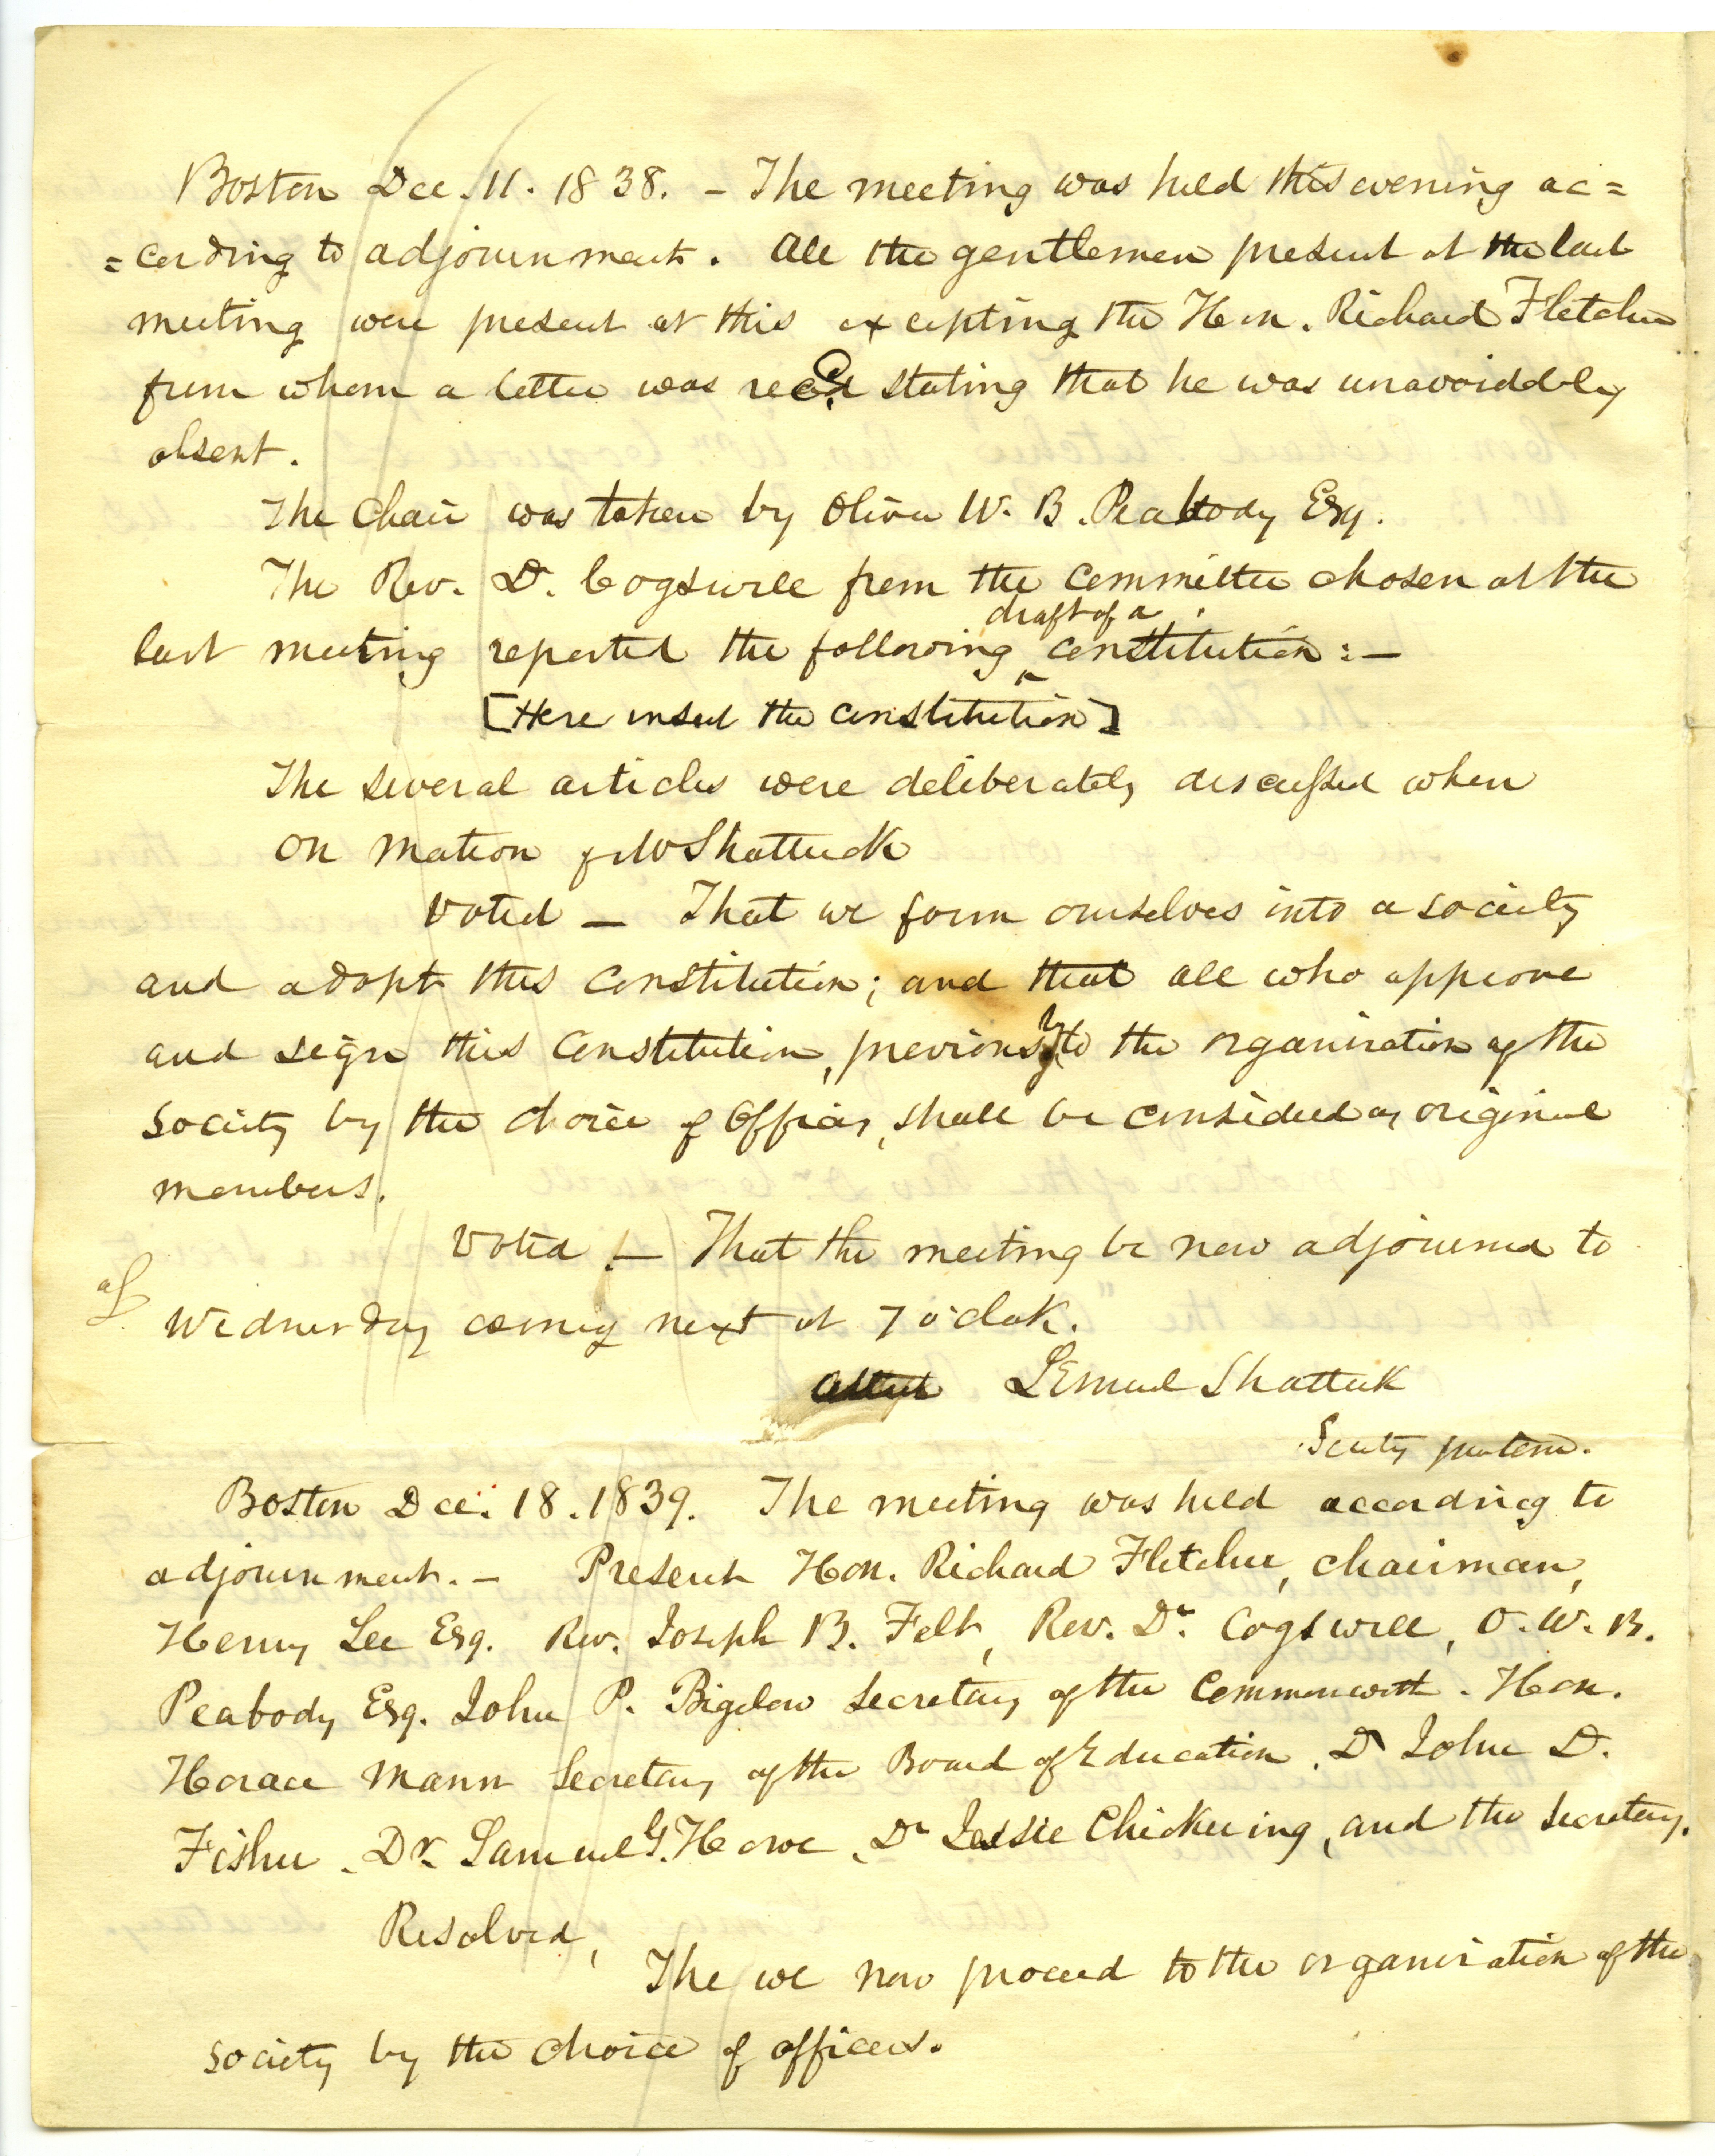 Boston Dec. 11. 1838. – The meeting was held this evening ac=
=cording to adjournment. All the gentlemen present at the last
meeting were present at this excepting the Hon. Richard Fletcher
from whom a letter was recd stating that he was unavoidably
absent.
The Chair was taken by Oliver W. B. Peabody Esq.
The Rev. Dr. Cogswell from the committee chosen at the
draft of a
last meeting reported the following ^ constitution :—
[Here insert the constitution]
The several articles were deliberately discussed when
on motion of Mr Shattuck
Voted — That we form ourselves into a society
and adopt this constitution; and that all who approve
and sign this Constitution, previously to the organization of the
society by the choice of Officers, shall be considered as original
members.
Voted — That the meeting be now adjourned to
Wednesday evening next at 7 o'clock.
Attest Lemuel Shattuck
Secty protem.
Boston Dec. 18. 1839. The meeting was held according to
adjournment. – Present Hon. Richard Fletcher, chairman,
Henry Lee Esq. Rev. Joseph B. Felt, Rev. Dr. Cogswell, O. W. B.
Peabody Esq. John P. Bigelow Secretary of the Commonwealth. Hon.
Horace Mann Secretary of the Board of Education, Dr John D.
Fisher, Dr. Samuel G. Howe, Dr Jesse Chickering, and the Secretary.
Resolved,
The we now proceed to the organization of the
society by the choice of officers.